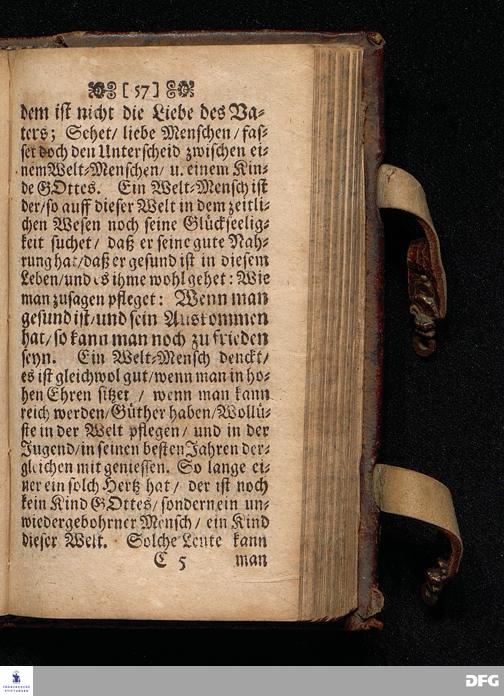 [ 57 ]
dem ist nicht die Liebe des Va-
ters; Sehet/ liebe Menschen/ fas-
set doch den Unterscheid zwischen ei-
nem Welt-Menschen/ u. einem Kin-
de GOttes. Ein Welt-Mensch ist
der/ so auff dieser Welt in dem zeitli-
chen Wesen noch seine Glückseelig-
keit suchet/ daß er seine gute Nah-
rung hat/ daß er gesund ist in diesem
Leben/ und es ihme wohl gehet: Wie
man zusagen pfleget: Wenn man
gesund ist/ und sein Auskommen
hat/ so kann man noch zu frieden
seyn. Ein Welt-Mensch denckt/
es ist gleichwol gut/ wenn man in ho-
hen Ehren sitzet / wenn man kann
reich werden/ Güther haben/ Wollü-
ste in der Welt pflegen/ und in der
Jugend/ in seinen besten Jahren der-
gleichen mit geniessen. So lange ei-
ner ein solch Hertz hat/ der ist noch
kein Kind GOttes/ sondern ein un-
wiedergebohrner Mensch/ ein Kind
dieser Welt. Solche Leute kann
C 5 man
FRANCKESCHE
STIFTUNGEN
DFG